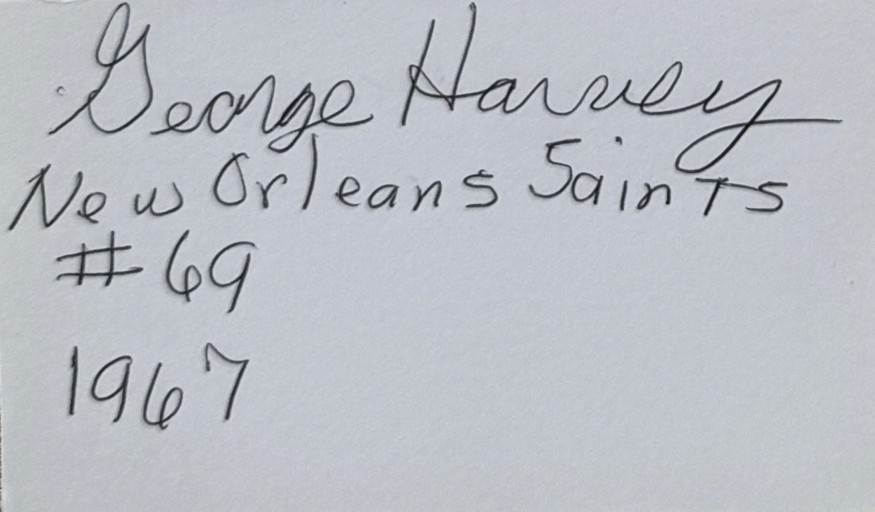 George Harvey
New Orleans Saints
#69
1967